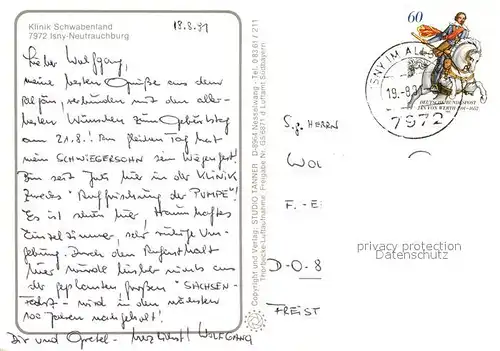 Klinik Schwabenland
7972 Isny-Neutrauchburg
19.8.91
Lieber Wolfgang,
meine besten Grüße aus dem
Allgäu, verbunden mit den aller-
besten Wünschen zum Geburtstag
am 21.8.! Am gleichen Tag hat
mein SCHWIEGERSOHN sein Wiegenfest!
Bin seit Juli hier in der KLINIK
zwecks "Auffrischung der PUMPE"!
Es ist schön hier, traumhaftes
Einzelzimmer, sehr ruhige Um-
gebung. Durch den Aufenthalt
hier wurde leider nichts aus
der geplanten großen "SACHSEN-
Fahrt" - wird in den nächsten
100 Jahren nachgeholt!
Dir und Gretel - herzlichst! WOLFGANG
Copyright und Verlag: STUDIO TANNER D-8964 Nesselwang - Tel. 08361 / 211
Freigabe Nr. d Luftamt Südbayern
60
DEUTSCHE BUNDESPOST
JAN VON WERTH
ISNY IM AL
19.-8.91
7972
S.g. HERRN
WOL
F.-E
D-O-8
FREIST
privacy protection
Datenschutz